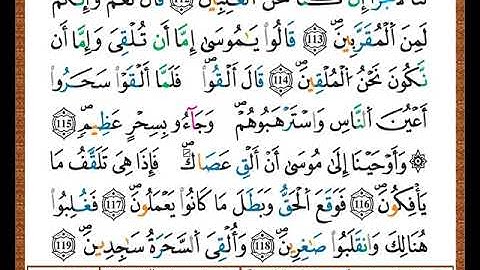 لَنَا لَأَجْرًا إِن كُنَّا نَحْنُ ٱلْغَٰلِبِينَ ١١٣ قَالَ نَعَمْ وَإِنَّكُمْ
لَمِنَ ٱلْمُقَرَّبِينَ ١١٣ قَالُوا۟ يَٰمُوسَىٰٓ إِمَّآ أَن تُلْقِىَ وَإِمَّآ أَن
نَّكُونَ نَحْنُ ٱلْمُلْقِينَ ١١٤ قَالَ أَلْقُوا۟ فَلَمَّآ أَلْقَوْا۟ سَحَرُوٓا۟
أَعْيُنَ ٱلنَّاسِ وَٱسْتَرْهَبُوهُمْ وَجَآءُو بِسِحْرٍ عَظِيمٍ ١١٥
۞ وَأَوْحَيْنَآ إِلَىٰ مُوسَىٰٓ أَنْ أَلْقِ عَصَاكَ فَإِذَا هِىَ تَلَقَّفُ مَا
يَأْفِكُونَ ١١٦ فَوَقَعَ ٱلْحَقُّ وَبَطَلَ مَا كَانُوا۟ يَعْمَلُونَ ١١٧ فَغُلِبُوا۟
هُنَالِكَ وَٱنقَلَبُوا۟ صَٰغِرِينَ ١١٨ وَأُلْقِىَ ٱلسَّحَرَةُ سَٰجِدِينَ ١١٩